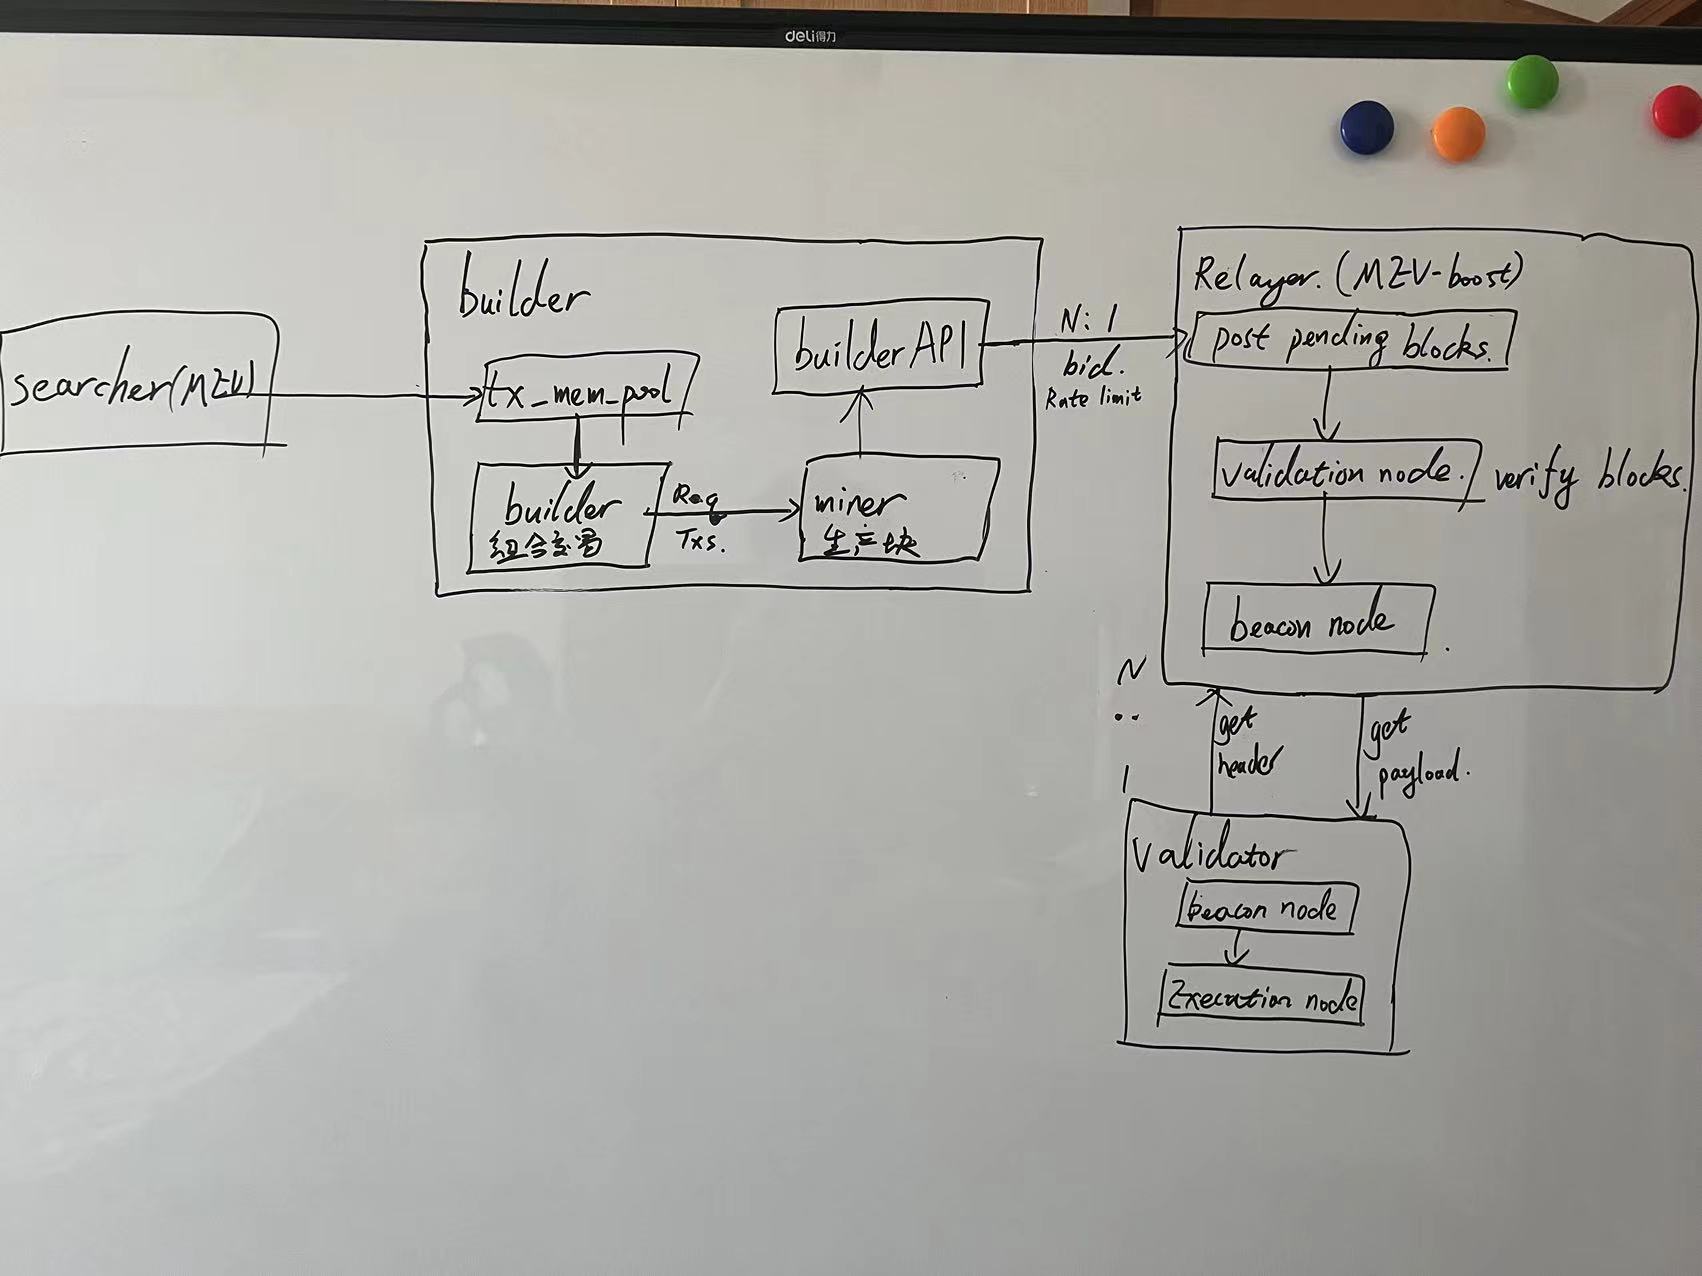 deli得力
searcher(MEV)
builder
tx_mem_pool
builder
组合交易
Req
Txs.
miner
生产块
builderAPI
N:1
bid.
Rate limit
Relayer.(MEV-boost)
post pending blocks.
validation node.
verify blocks.
beacon node
N
..
1
get
header
get
payload.
Validator
beacon node
Execution node